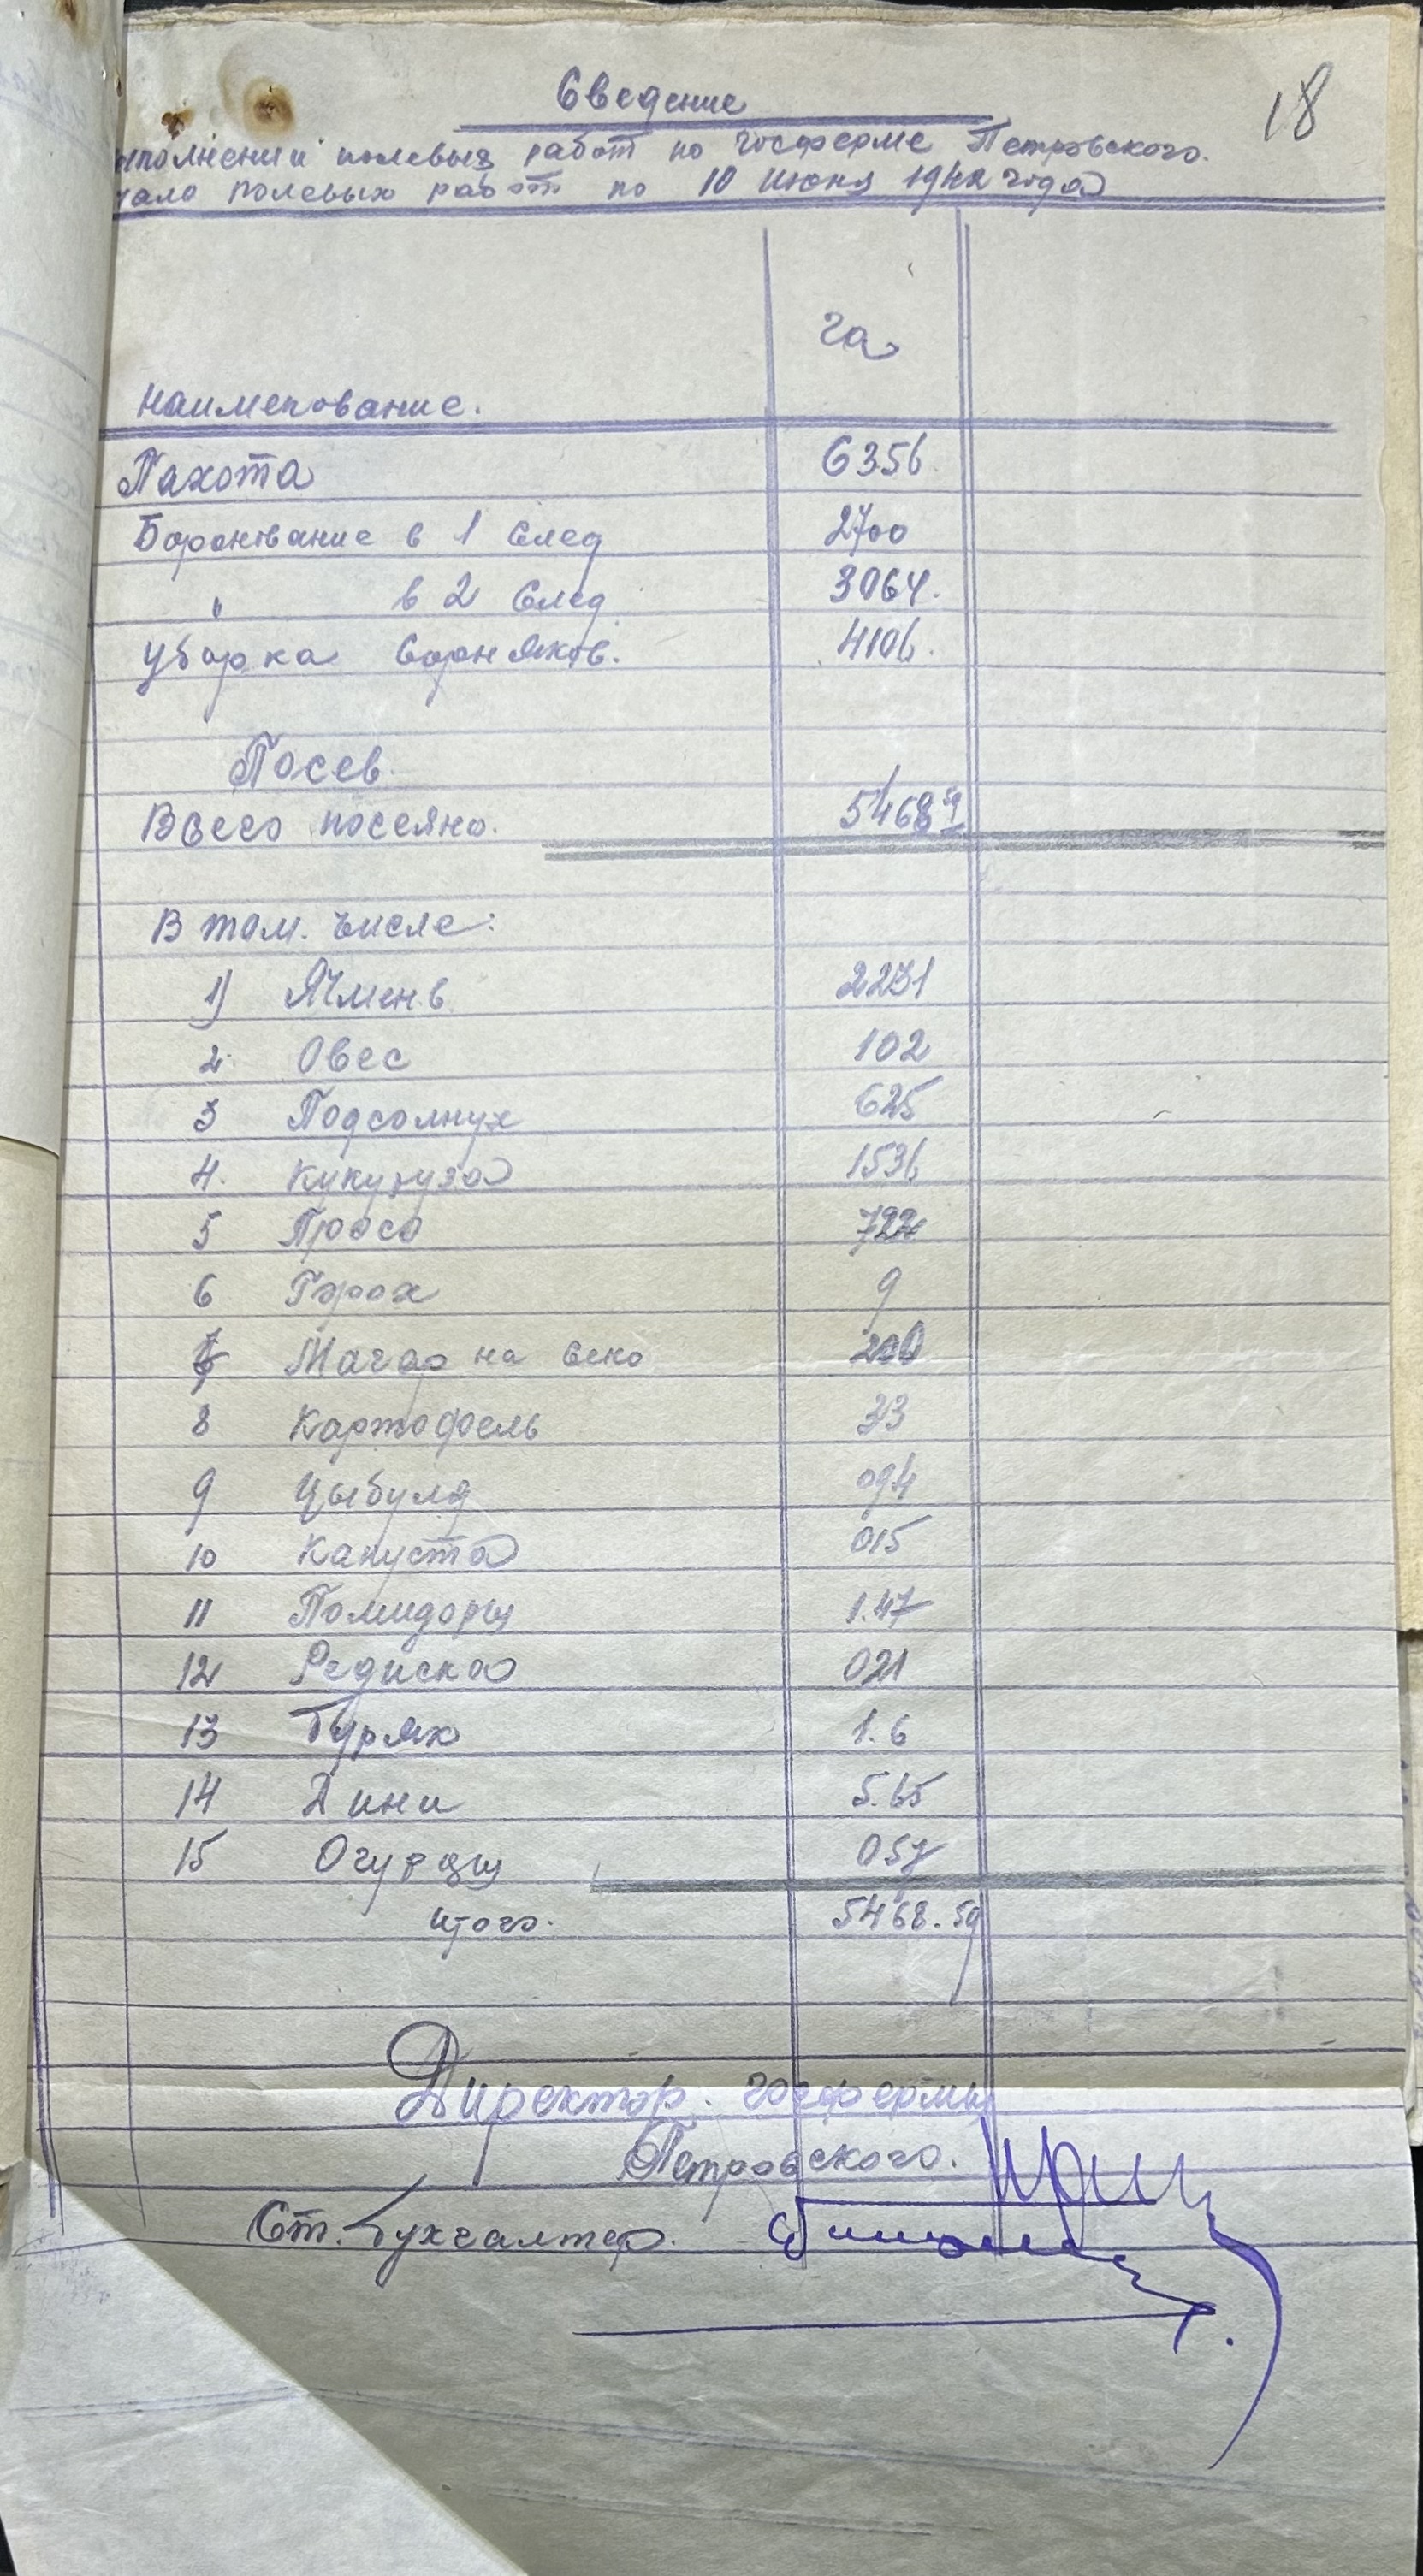 Сведение
18
ыполнении полевых работ по госферме Петровского.
чала полевых работ по 10 июня 1942 года
га
Наименование.
Пахота 6356.
Боронование в 1 след 2700
" в 2 след 3064.
Уборка сорняков. 4106.
Посев.
Всего посеяно. 5468 59
В том. числе:
1) Ячмень 2231
2. Овес 102
3 Подсолнух 625
4. Кукуруза 1536
5 Просо 722
6 Горох 9
7 Магар на сено 200
8 Картофель 33
9 Цыбуля 094
10 Капуста 015
11 Помидоры 1.47
12 Редиска 021
13 Буряк 1.6
14 Дини 5.65
15 Огурцы 057
Итого. 5468.59
Директор. госфермы
Петровского.
Ст. Бухгалтер.